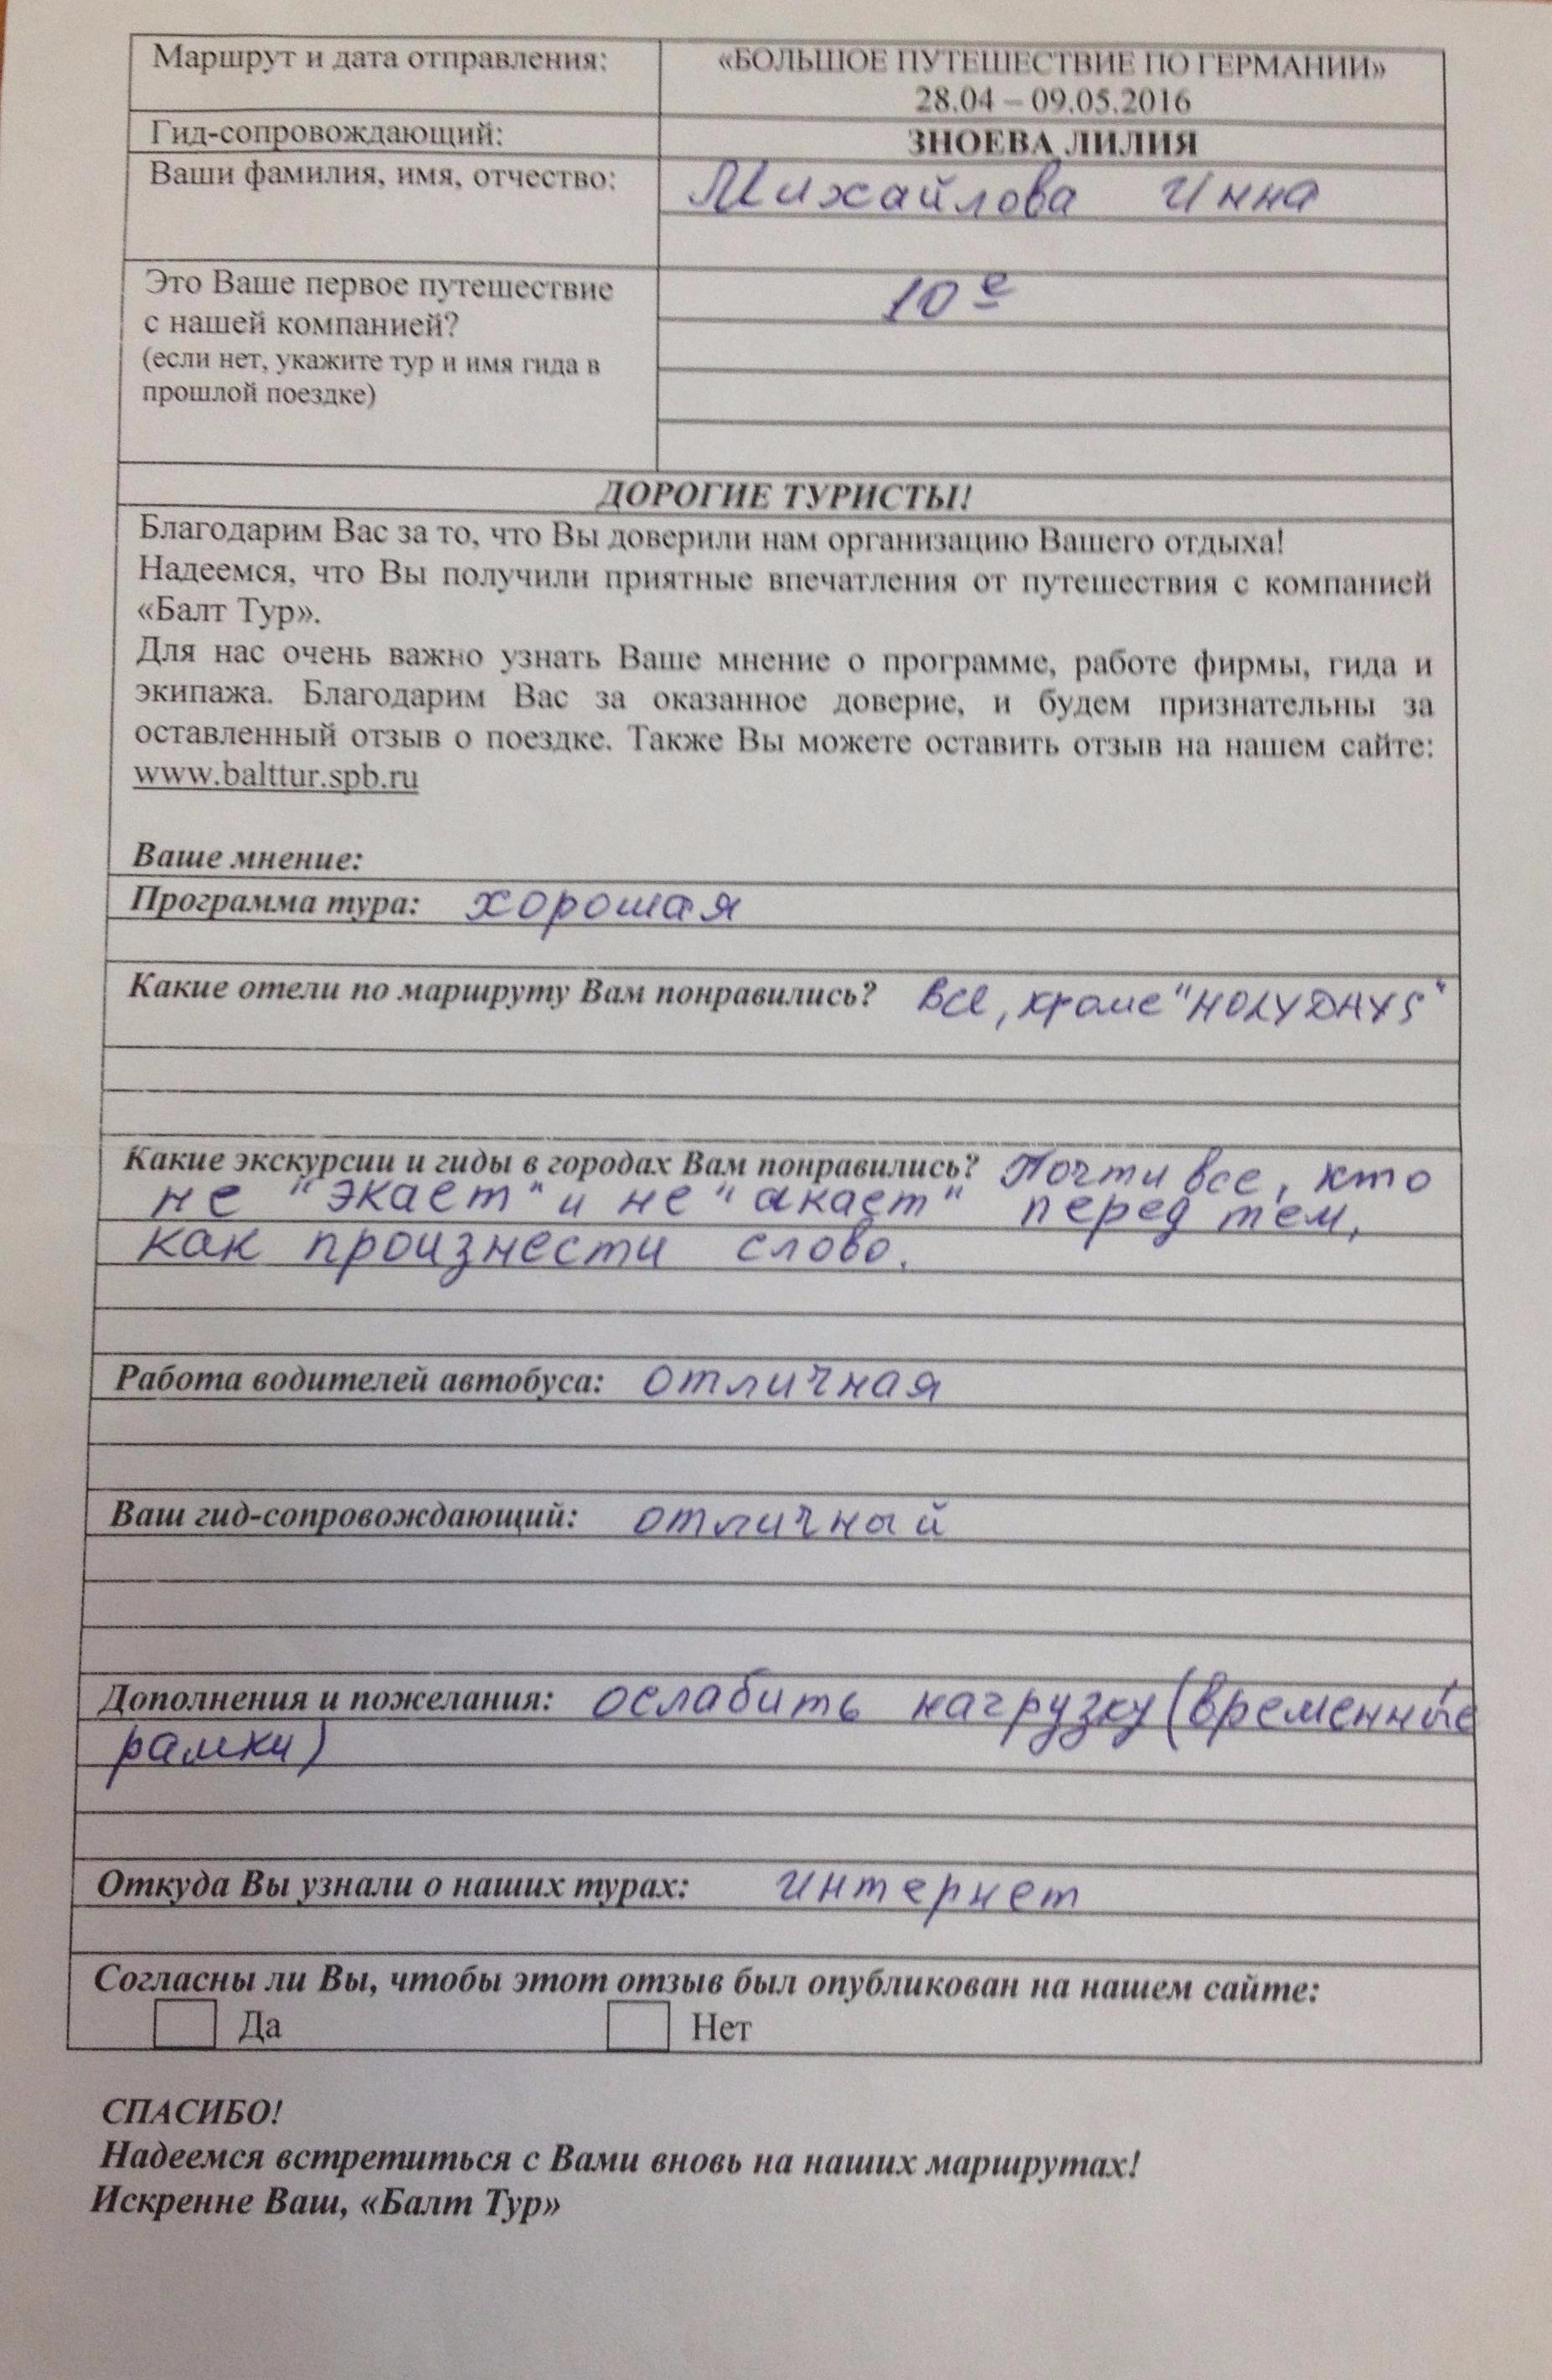 Маршрут и дата отправления:
«БОЛЬШОЕ ПУТЕШЕСТВИЕ ПО ГЕРМАНИИ»
28.04 – 09.05.2016
Гид-сопровождающий:
ЗНОЕВА ЛИЛИЯ
Ваши фамилия, имя, отчество:
Михайлова Инна
Это Ваше первое путешествие
с нашей компанией?
(если нет, укажите тур и имя гида в
прошлой поездке)
10е
ДОРОГИЕ ТУРИСТЫ!
Благодарим Вас за то, что Вы доверили нам организацию Вашего отдыха!
Надеемся, что Вы получили приятные впечатления от путешествия с компанией
«Балт Тур».
Для нас очень важно узнать Ваше мнение о программе, работе фирмы, гида и
экипажа. Благодарим Вас за оказанное доверие, и будем признательны за
оставленный отзыв о поездке. Также Вы можете оставить отзыв на нашем сайте:
www.balttur.spb.ru
Ваше мнение:
Программа тура: хорошая
Какие отели по маршруту Вам понравились? Все, кроме "HOLYDAYS"
Какие экскурсии и гиды в городах Вам понравились? Почти все, кто
не "экает" и не "акает" перед тем,
как произнести слово.
Работа водителей автобуса: отличная
Ваш гид-сопровождающий: отличный
Дополнения и пожелания: ослабить нагрузку (временные
рамки)
Откуда Вы узнали о наших турах: интернет
Согласны ли Вы, чтобы этот отзыв был опубликован на нашем сайте:
Да Нет
СПАСИБО!
Надеемся встретиться с Вами вновь на наших маршрутах!
Искренне Ваш, «Балт Тур»